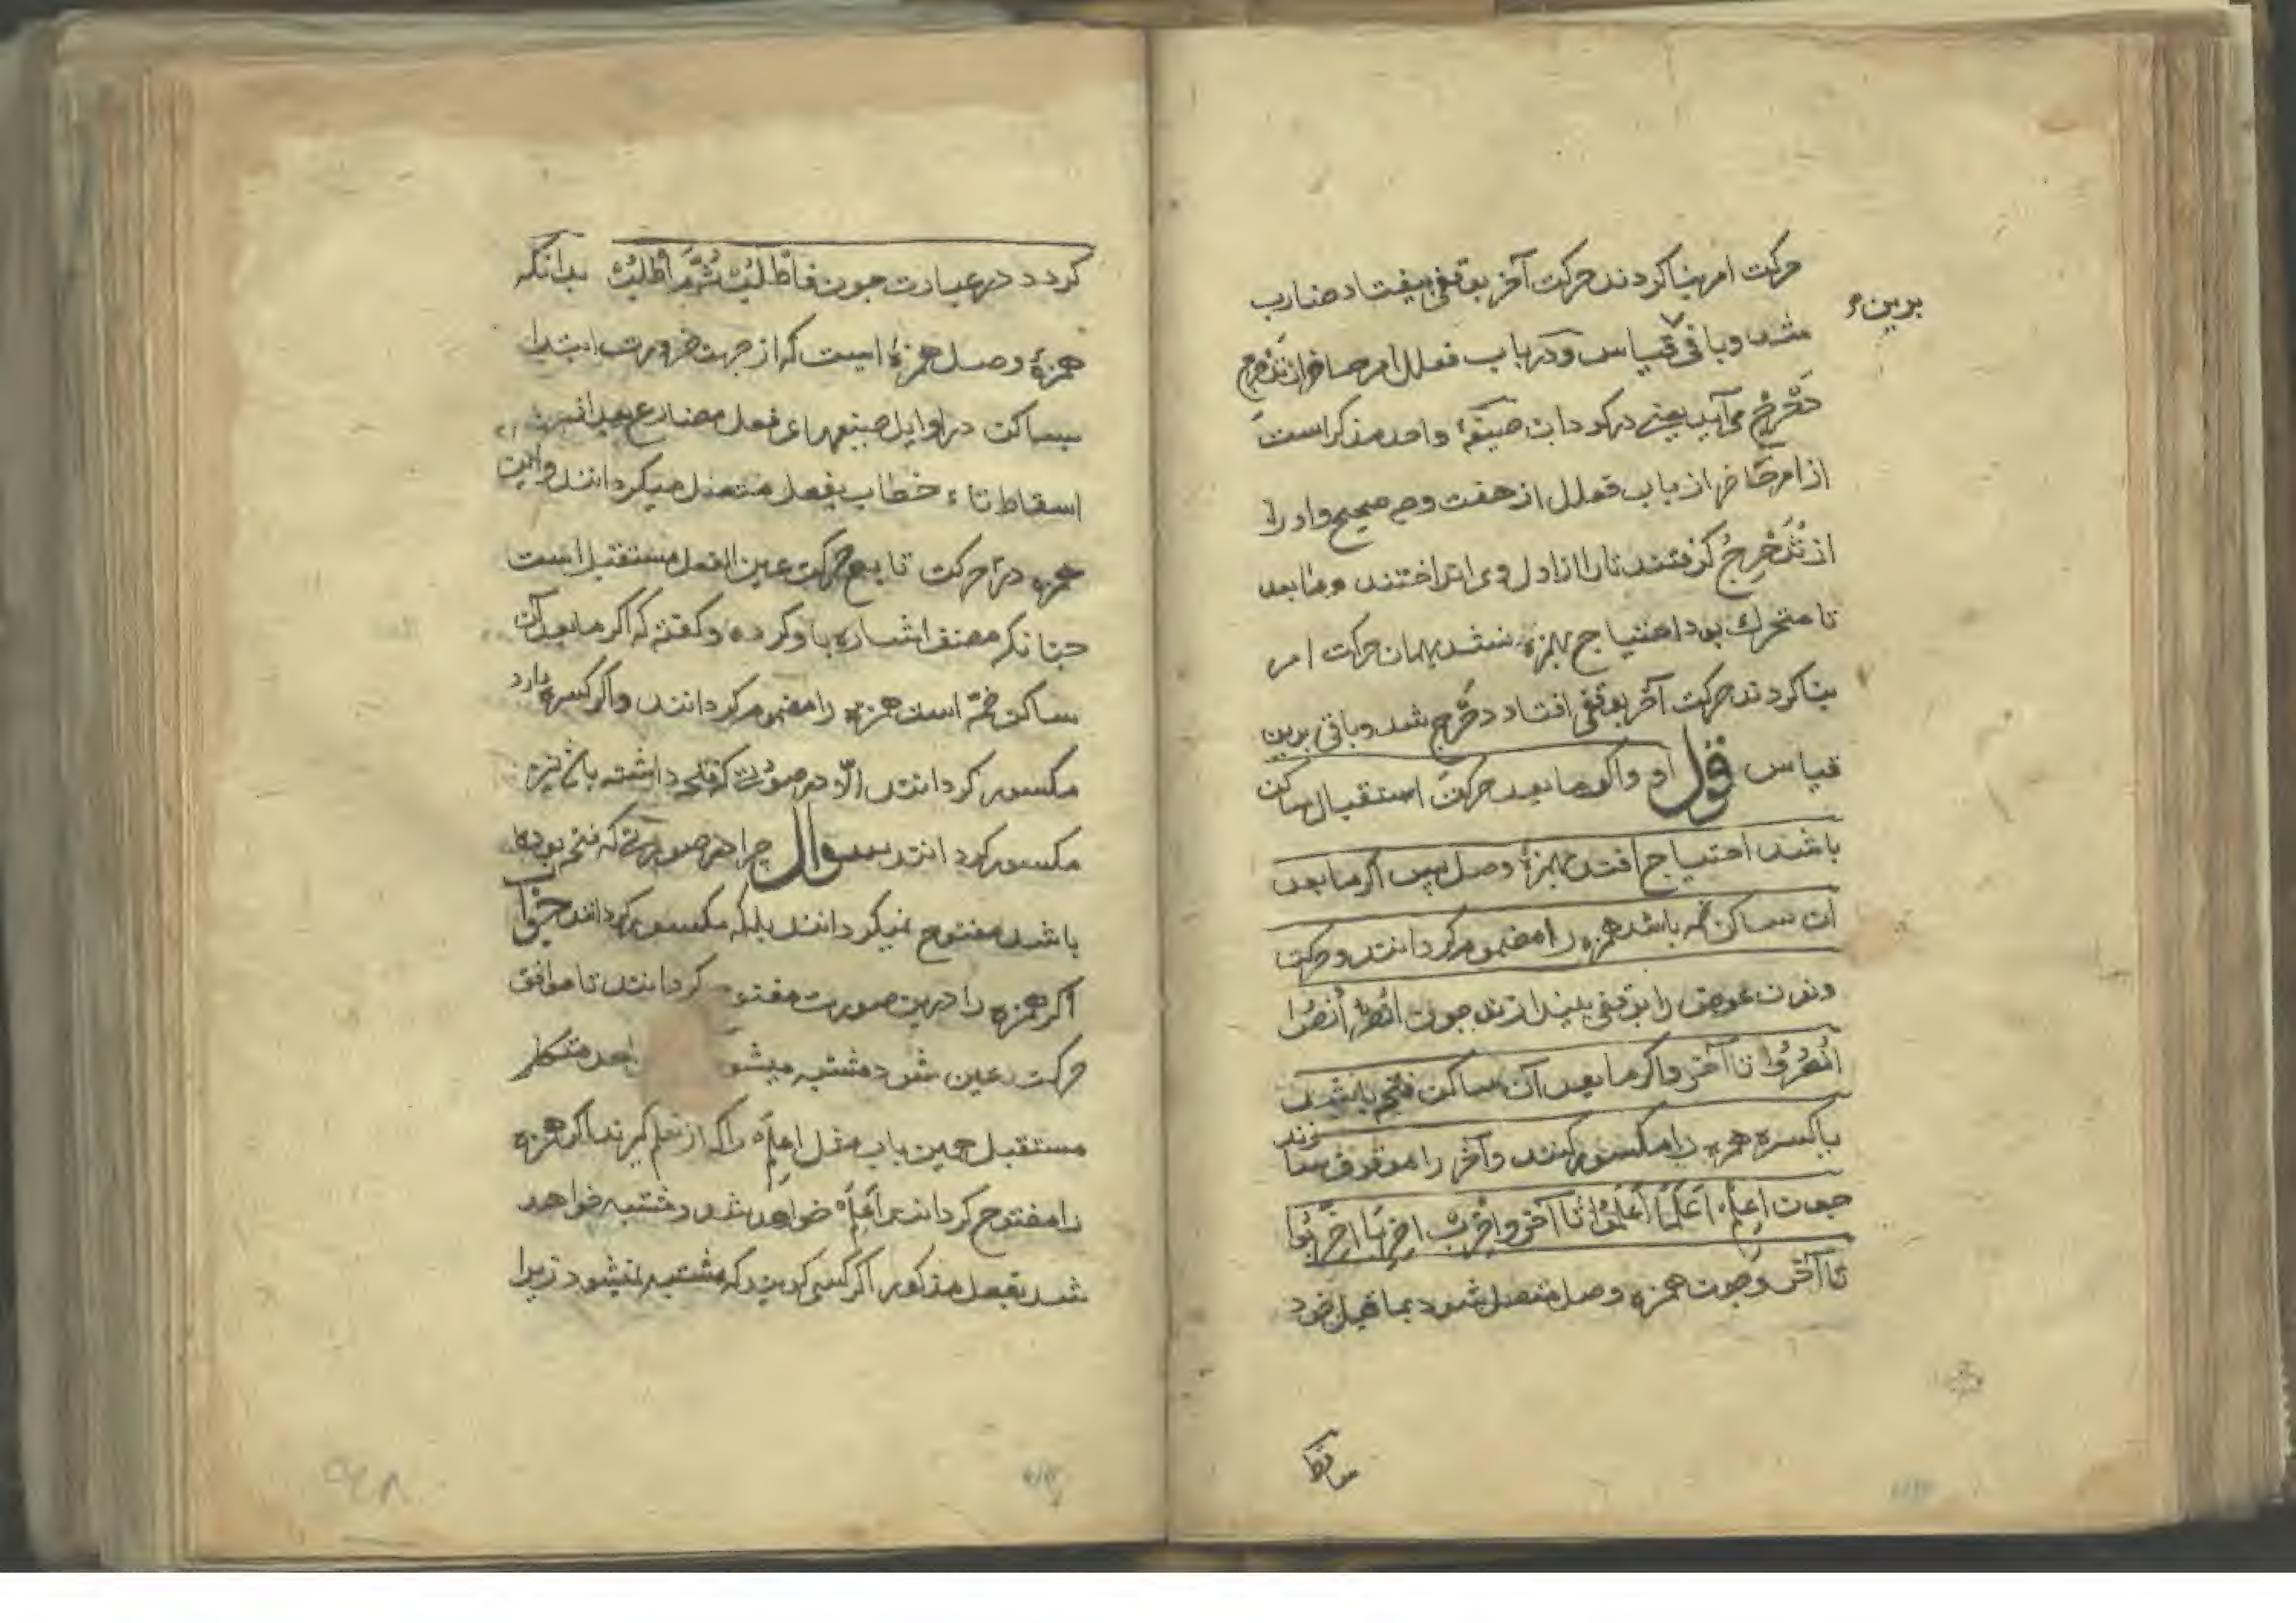 حرکت امر بنا کردند حرکت آخر بوقفی بیفتاد ضارب
برین
شد و باقی قیاس و در باب فعلل امر حاضر از تدحرج
دحرج می آید یعنی در کردان صیغهٔ واحد مذکر است
از امر حاضر از باب فعلل از هفت وجه صحیح و او را
از تدحرج کرفتند تا را از اول وی انداختند و ما بعد
تا متحرك بود احتیاج بهمزه نشد بهمان حرکت امر
بنا کردند حرکت آخر بوقفی افتاد دحرج شد و باقی برین
قیاس قول او واکر ما بعد حرکت استقبال ساکن
باشد احتیاج افتد بهمزهٔ وصل پس اکر ما بعد
ان ساکن ضمه باشد همزه را مضموم کردانند و حرکت
ونون عوضی را بوقفی بیندازند جون انصر انصرا
انصروا تا آخر واکر ما بعد آن ساکن فتحه باشد
یا کسره همزه را مکسور کنند وآخر را موقوف سا
زند
جون اعلم اعلما اعلموا تا آخر واضرب اضربا اضربوا
تا آخر وجون همزه وصل متصل شود بما قبل خود
ساقط
کردد در عبارت جون فاطلب ثم اطلب بدانکه
همزهٔ وصل همزهٔ است که از جهت ضرورت ابتدا
بساکن در اوایل صیغهای فعل مضارع بعد از
اسقاط تاء خطاب بفعل متصل میکردانند واین
همزه در حرکت تابع حرکت عین الفعل مستقبل است
جنانکه مصنف اشاره باو کرده وکفته که اکر ما بعد آن
ساکن ضمه است همزه را مضموم کردانند واکر کسره دارد
مکسور کردانند الا در صورت که فتحه داشته باشد نیز
مکسور کردانند سوال چرا در صورتی که فتحه بوده
باشد مفتوح نمیکردانند بلکه مکسور میکردانند جواب
اکر همزه را درین صورت مفتوح کردانند تا موافق
حرکت عین شود مشتبه میشود بواحد متکلم
مستقبل همین باب مثل اعلم را که از تعلم کیرند اکر همزه
را مفتوح کردانند اعلم خواهد شد ومشتبه خواهد
شد بفعل مذکور اکر کسی کوید که مشتبه نمیشود زیرا